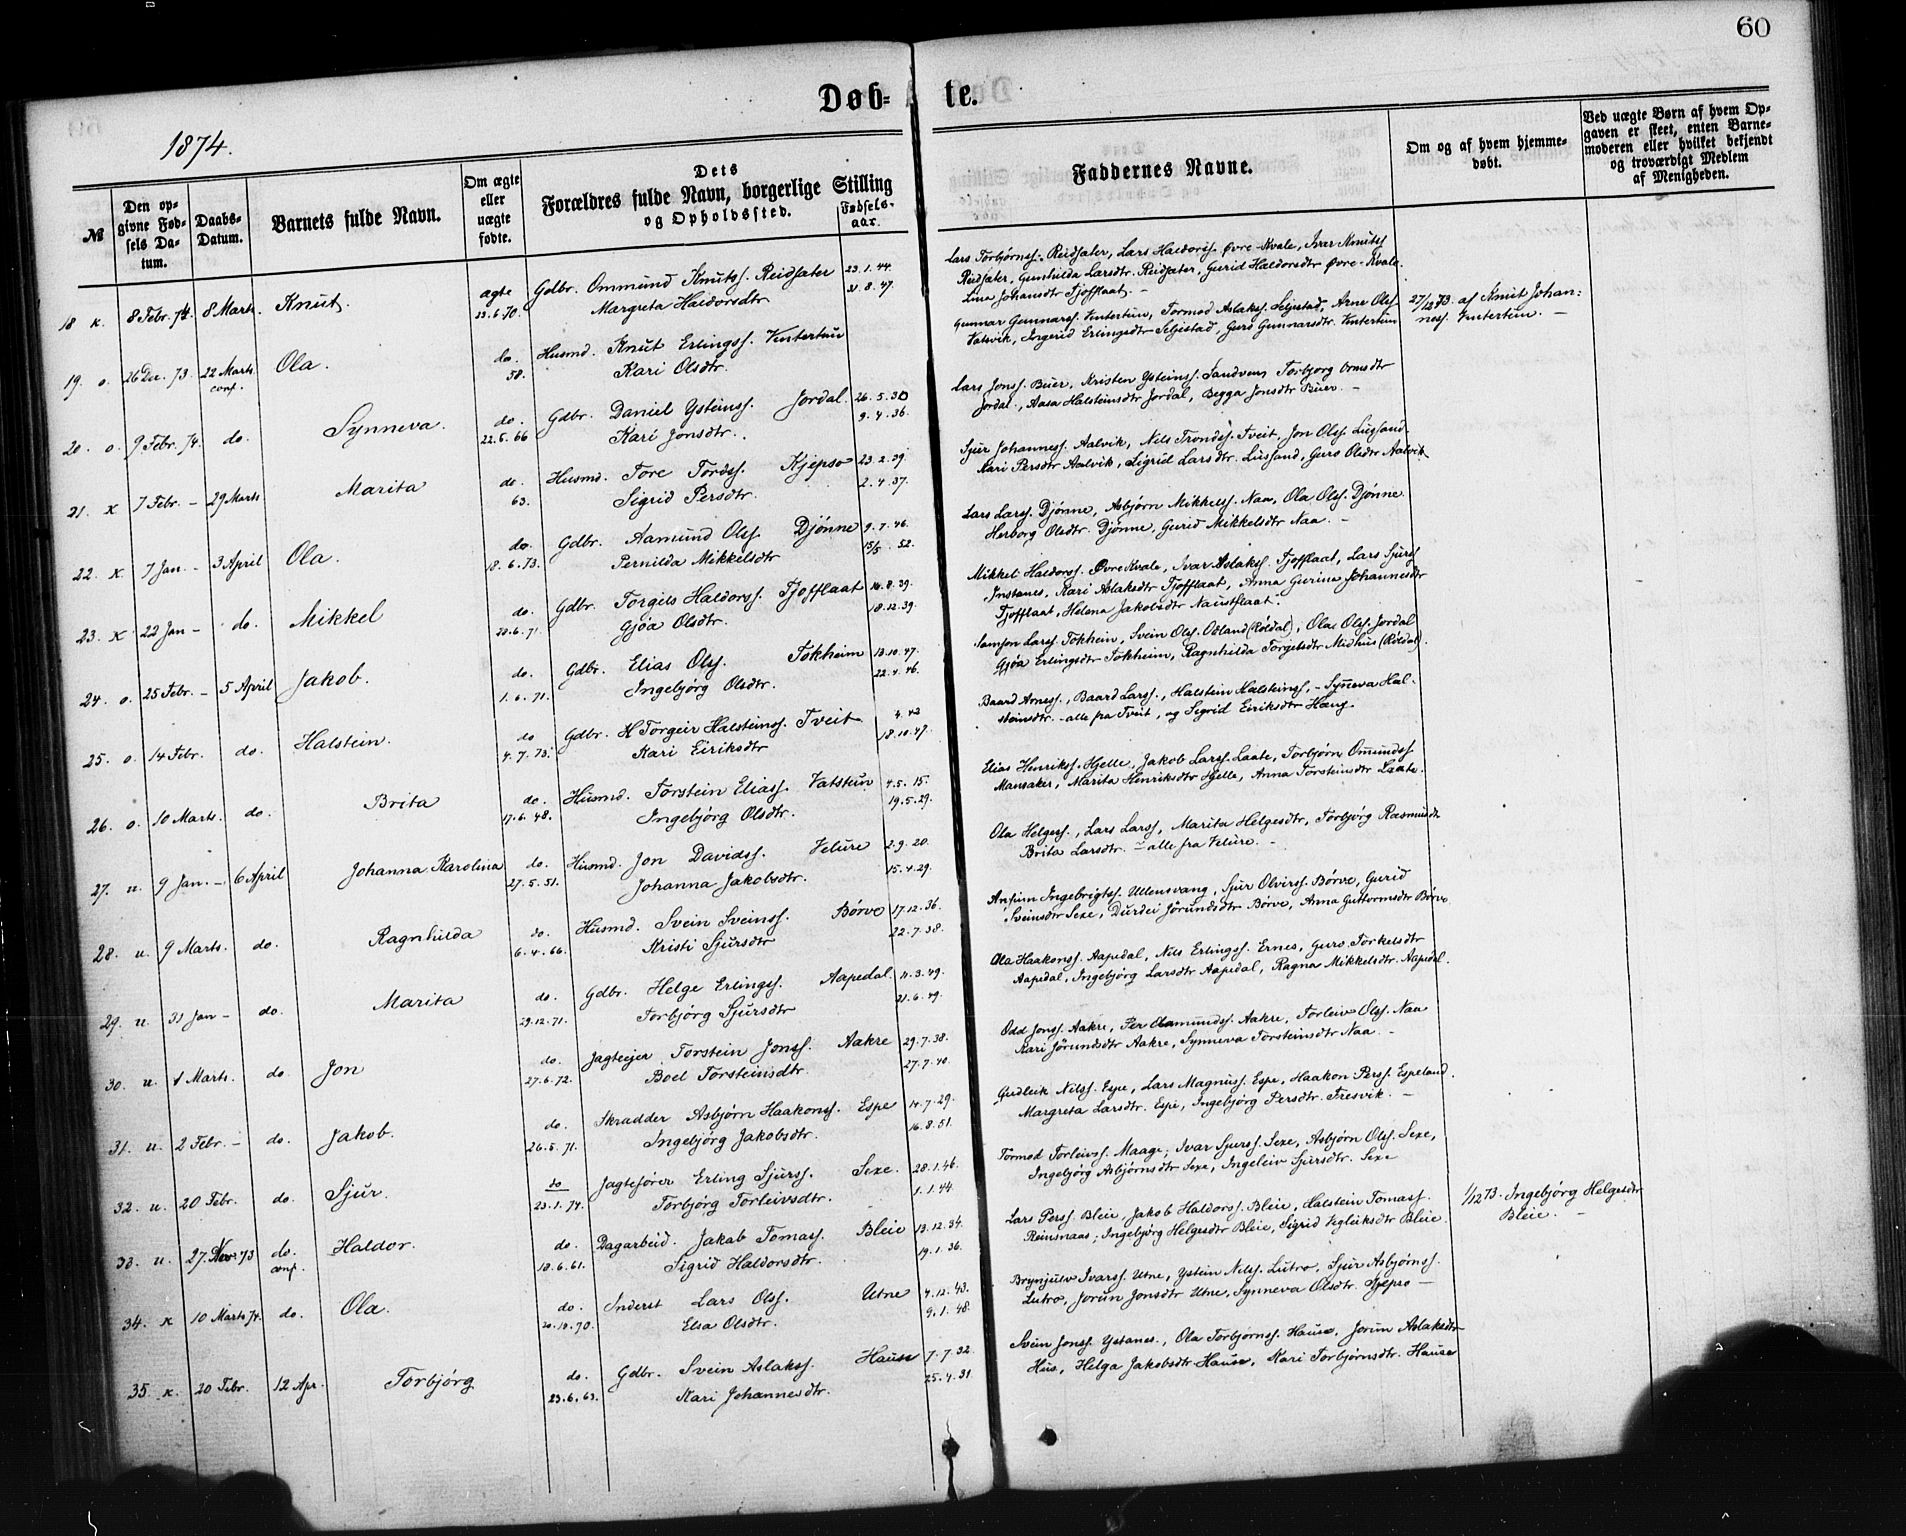 60
Døb- te.
1874.
№
Den opgivne Fødsels Datum.
Daabs-Datum.
Barnets fulde Navn.
Om ægte eller uægte fødte.
Dets Forældres fulde Navn, borgerlige Stilling og Opholdssted.
Fødselsaar.
Faddernes Navne.
Om og af hvem hjemmedøbt.
Ved uægte Børn af hvem Opgaven er skeet, enten Barnemoderen eller hvilket bekjendt og troværdigt Medlem af Menigheden.
18 k. 8 Febr. 74 8 Marts. Knut. ægte 23.6.70. Gdbr. Ommund Knutss. Reidsæter 23.1.44.
Margreta Haldorsdtr 31.8.47.
Lars Torbjørnss. Reidsæter, Lars Haldorss. Øvre-Kvale, Ivar Knutss
Reidsæter, Gunhilda Larsdtr. Reidsæter, Gurid Haldorsdtr Øvre-Kvale.
Lina Johansdtr Tjoflaat. -
19. o. 26 Dec. 73. 22 Marts conf. Ola. do. 58. Husmd. Knut Erlingss. Vintertun
Kari Olsdtr.
Gunnar Gunnarss. Vintertun, Tormod Aslakss. Seljestad, Arne Olss.
Valsvik, Ingerid Erlingsdtr Seljestad, Guro Gunnarsdtr. Vintertun
27/12 73. af Knut Johanness. Vintertun. -
20. o. 9 Febr. 74. do. Synneva. do. 22.5.66 Gdbr. Daniel Ysteinss. Jordal 26.5.30
Kari Jonsdtr. 9.4.36.
Lars Jonss. Buer, Kristen Ysteinss. Sandven, Torbjorg Ormsdtr
Jordal., Aasa Halsteinsdtr Jordal, Begga Jonsdtr Buer. -
21. k 7 Febr. - 29 Marts Marita do. 63. Husmd. Tore Tordss. Kjepso 23.2.39.
Sigrid Persdtr. 2.4.37.
Sjur Johanness. Aalvik, Nils Trondss. Tveit, Jon Olss. Lussand.
Kari Persdtr Aalvik, Sigrid Larsdtr. Lussand, Guro Olsdtr Aalvik
22. k 7 Jan. - 3 April Ola. do. 18.6.73. Gdbr. Aamund Olss. Djønne 9.7.46.
Pernilda Mikkelsdtr 15/5. 52.
Lars Larss. Djønne, Asbjørn Mikkelss. Naa, Ola Olss. Djønne
Herborg Olsdtr. Djønne, Gurid Mikkelsdtr Naa. -
23. k 22 Jan - do. Mikkel do. 20.6.71. Gdbr. Torgils Haldorss. Tjofflaat 14.8.39.
Gjøa Olsdtr. 18.12.39.
Mikkel Haldorss. Øvre Kvale, Ivar Aslakss. Tjofflaat, Lars Sjurss
Instanes, Kari Aslaksdtr Tjofflaat, Anna Gurina Johannesdtr
Tjofflaat, Helena Jakobsdtr Naustflaat.
24. o. 25 Febr. - 5 April Jakob. do. 1.6.71. Gdbr. Elias Olss. Tokheim 13.10.47.
Ingebjørg Olsdtr. 22.4.46.
Samson Larss. Tokheim, Svein Olss. Odland (Røldal), Ola Olss. Jordal
Gjøa Erlingsdtr Tokheim, Ragnhilda Torgilsdtr Midhus (Røldal).
25. o. 14 Febr. do. Halstein. do 4.7.73. Gdbr. Torgeir Halsteinss. Tveit 4.42
Kari Eiriksdtr 18.10.47.
Baard Arness., Baard Larss., Halstein Halsteinss, - Synneva Halsteinsdtr.
- alle fra Tveit, og Sigrid Eiriksdtr Haug.
26. o. 10 Marts. do. Brita do. 17.6.48. Husmd. Torstein Eliass. Vatstun 4.5.15.
Ingebjørg Olsdtr. 19.5.29.
Elias Henrikss. Hjelle, Jakob Larss. Laate, Torbjørn Omundss
Mansaker, Marita Henriksdtr Hjelle, Anna Torsteinsdtr Laate.
27. u. 9 Jan. - 6 April Johanna Karolina do. 27.5.51. Husmd. Jon Davidss. Velure 2.9.20.
Johanna Jakobsdtr. 15.4.29.
Ola Helgess., Lars Larss, Marita Helgesdtr, Torbjörg Rasmusdtr
Brita Larsdtr. - alle fra Velure. -
28. u. 9 Marts. do. Ragnhilda do. 6.4.66. Husmd. Svein Sveinss. Børve 17.12.36.
Kristi Sjursdtr 22.7.38.
Anfinn Ingebrigtss. Ullensvang, Sjur Olvirss. Børve, Gurid
Sveinsdtr Sexe, Durdei Jörundsdtr Børve, Anna Guttormsdtr Børve
29. u. 31 Jan - do. Marita do. 29.12.71. Gdbr. Helge Erlingss. Aapedal 11.3.49.
Torbjørg Sjursdtr 21.6.49.
Ola Haakonss. Aapedal, Nils Erlingss. Ernes, Guro Torkelsdtr
Aapedal, Ingebjørg Larsdtr Aapedal, Ragna Mikkelsdtr. Aapedal.
30. u. 1 Marts. do Jon do. 27.6.72. Jagteejer Torstein Jonss. Aakre 29.7.38.
Boel Torsteinsdtr. 27.7.40.
Odd Jonss. Aakre, Per Aamundss. Aakre, Torleiv Olss. Naa
Kari Jörundsdtr Aakre, Synneva Torsteinsdtr Naa. -
31. u. 2 Febr. - do. Jakob. do. 26.5.71. Skradder Asbjørn Haakonss. Espe 14.7.29.
Ingebjørg Jakobsdtr. 16.8.51.
Gudleik Nilss. Espe, Lars Magnuss. Espe, Haakon Perss. Espeland.
Margreta Larsdtr. Espe, Ingebjørg Persdtr. Tresvik. -
32. u. 20 Febr. do. Sjur. do 23.1.74. Jagtefører Erling Sjurss. Sexe. 28.1.46.
Torbjørg Torleivsdtr. 1.1.44.
Tormod Torleivss. Maage, Ivar Sjurss. Sexe, Asbjørn Olss. Sexe,
Ingebjørg Asbjørnsdtr Sexe, Ingeleiv Sjursdtr. Sexe
33. u. 27. Nov. 73 do. conf. Haldor. do. 10.6.61. Dagarbeid. Jakab Tomass. Bleie 13.12.34.
Sigrid Haldorsdtr. 19.1.36.
Lars Perss. Bleie, Jakob Haldorss. Bleie, Halstein Tomass.
Reinsnaas, Ingebjørg Helgesdtr Bleie, Sigrid Vigleiksdtr Bleie.
1/12 73. Ingebjørg Helgesdtr Bleie. -
34. k 10 Marts 74. do. Ola. do. 20.10.70. Inderst Lars Olss. Utne 4.12.43.
Elsa Olsdtr. 9.1.48.
Brynjulv Ivarss. Utne, Ystein Nilss. Lutro, Sjur Asbjørnss.
Lutro, Jorun Jonsdtr Utne, Synneva Olsdtr. Kjepso -
35. k. 20 Febr. 12 Apr. Torbjørg do. 23.6.63. Gdbr. Svein Aslakss. Hause 7.7.32.
Kari Johannesdtr. 25.4.31.
Svein Jonss. Ystanes., Ola Torbjørnss. Hause, Jorun Aslaksdtr
Hus, Helga Jakobsdtr Hause, Kari Torbjørnsdtr. Hause